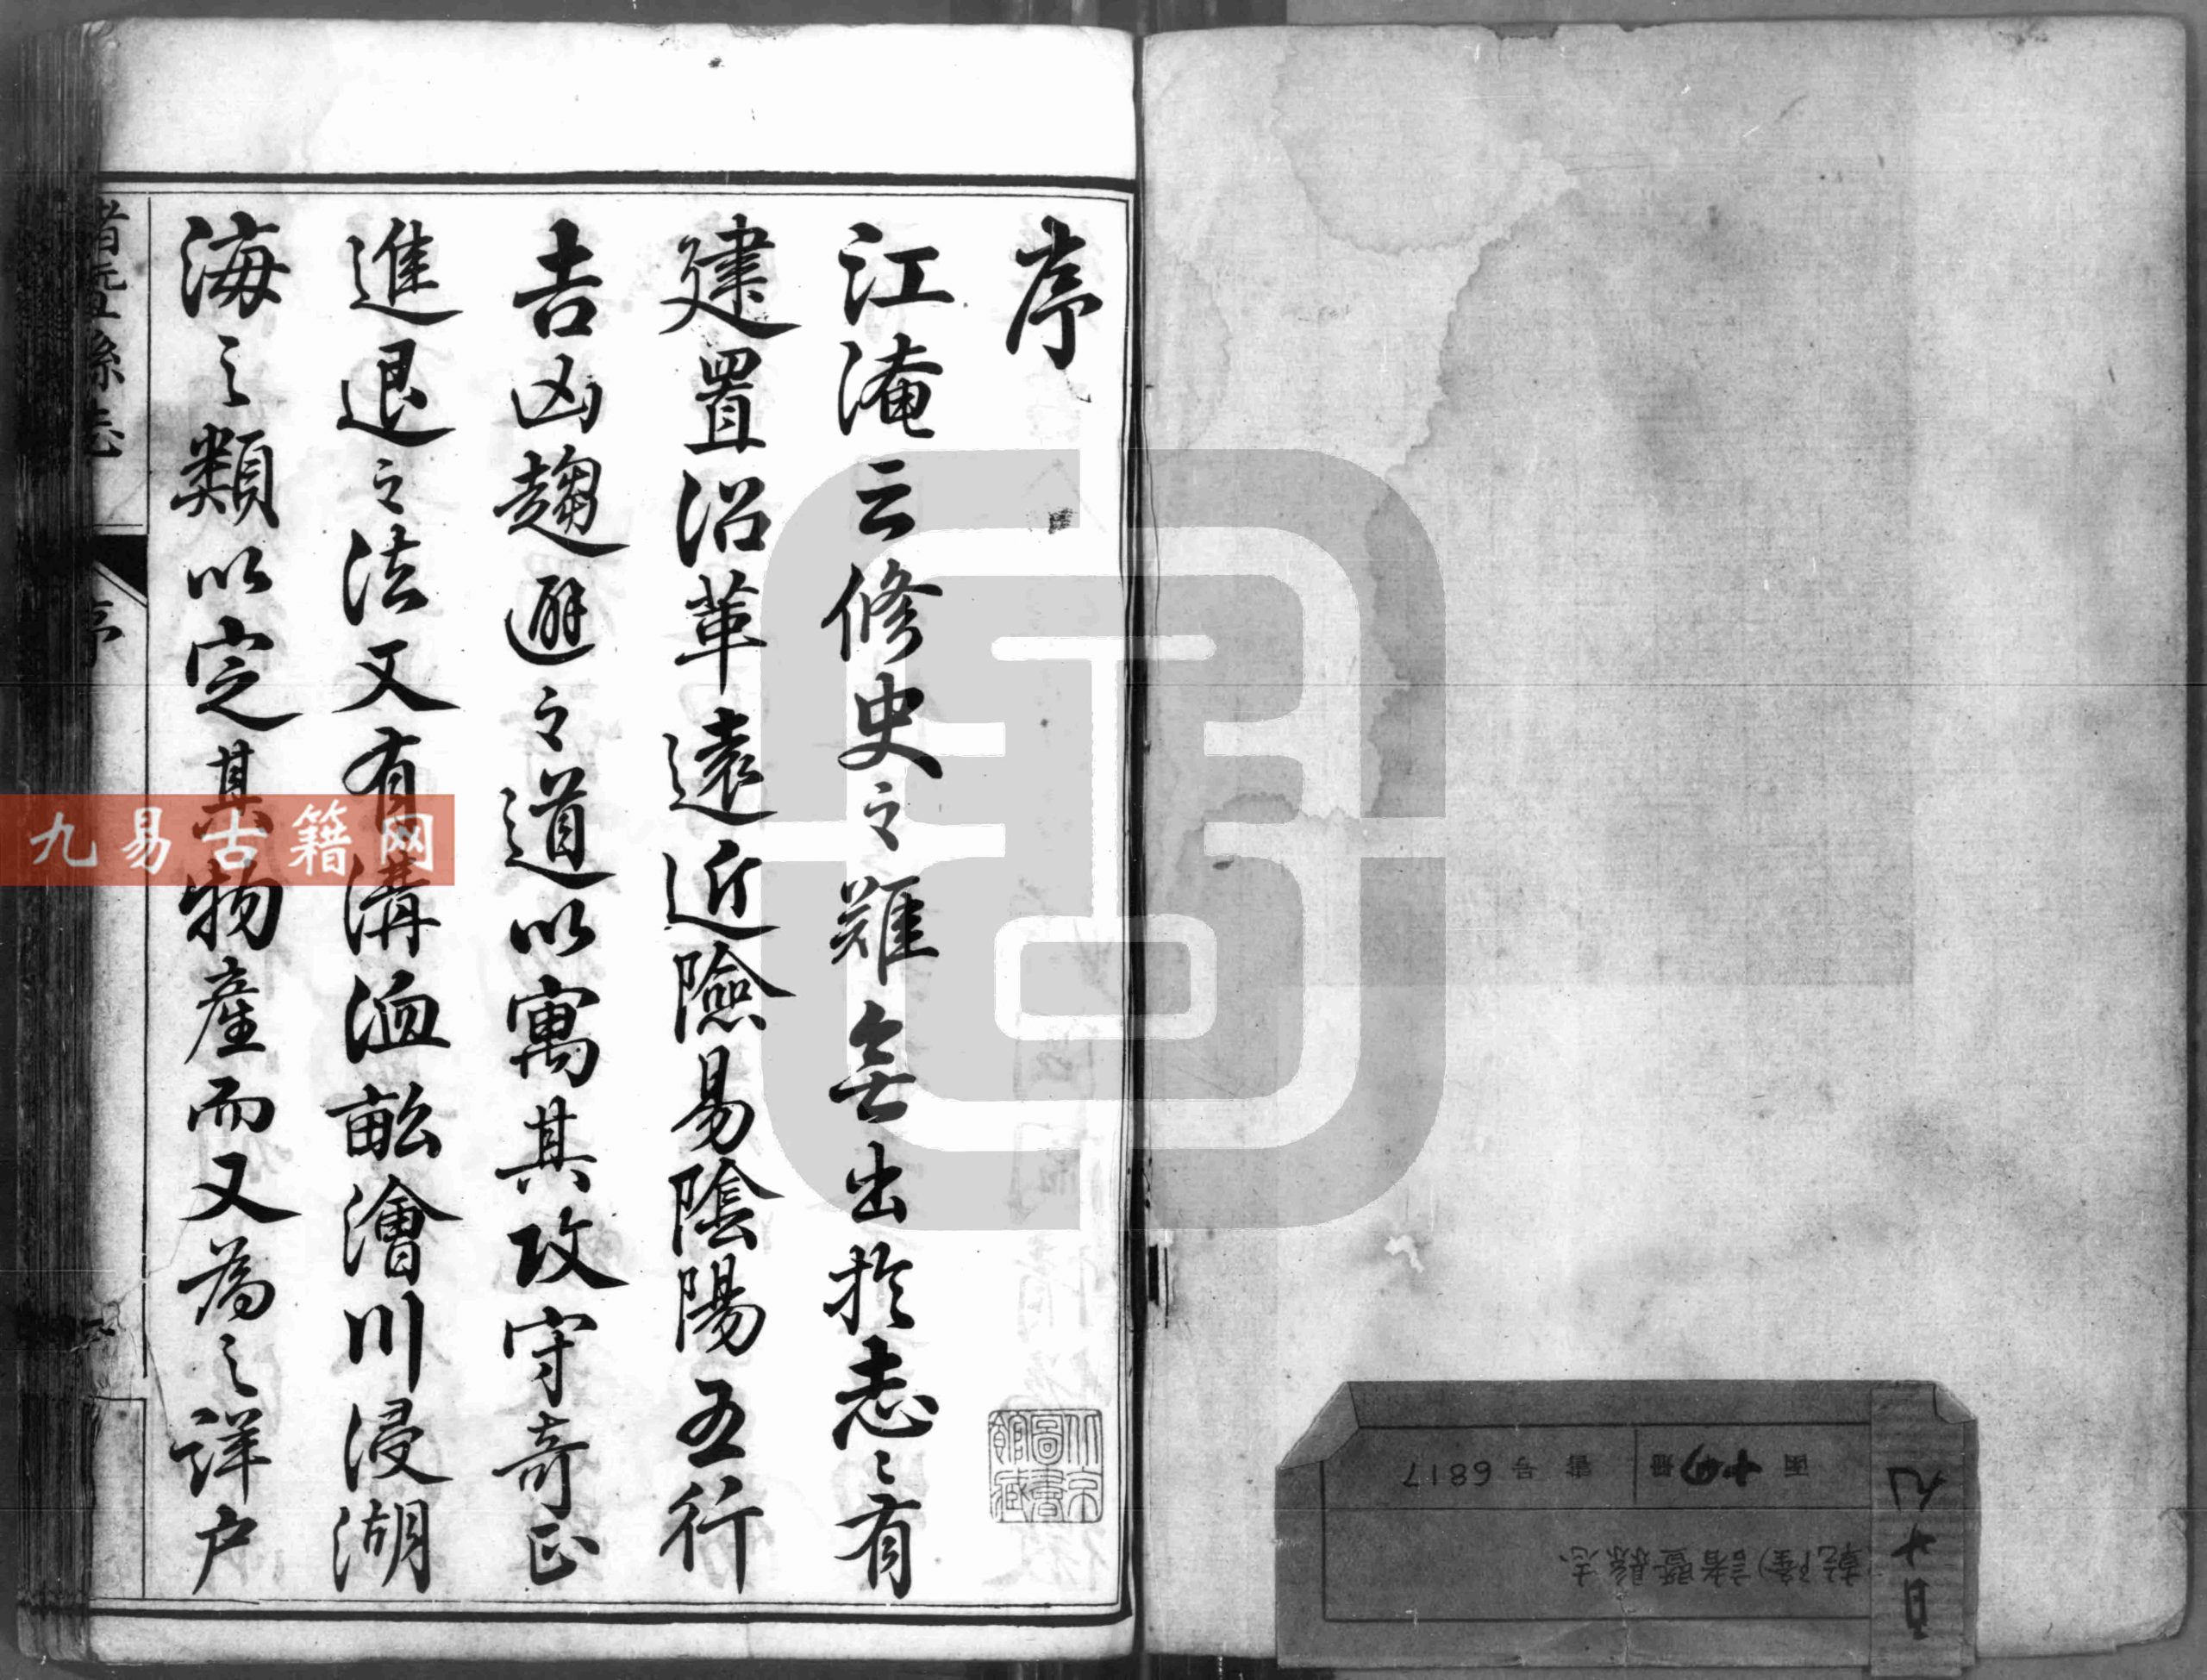 序
江淹云修史之難無出於志〻有
建置沿革遠近險易陰陽五行
吉凶趨避之道以寓其攻守奇正
進退之法又有溝洫畝澮川浸湖
海之類以定其物產而又為之詳户
諸暨縣志
序
九易古籍网
北京圖書館藏
函 十四冊 書号 6817
(乾隆)諸暨縣志